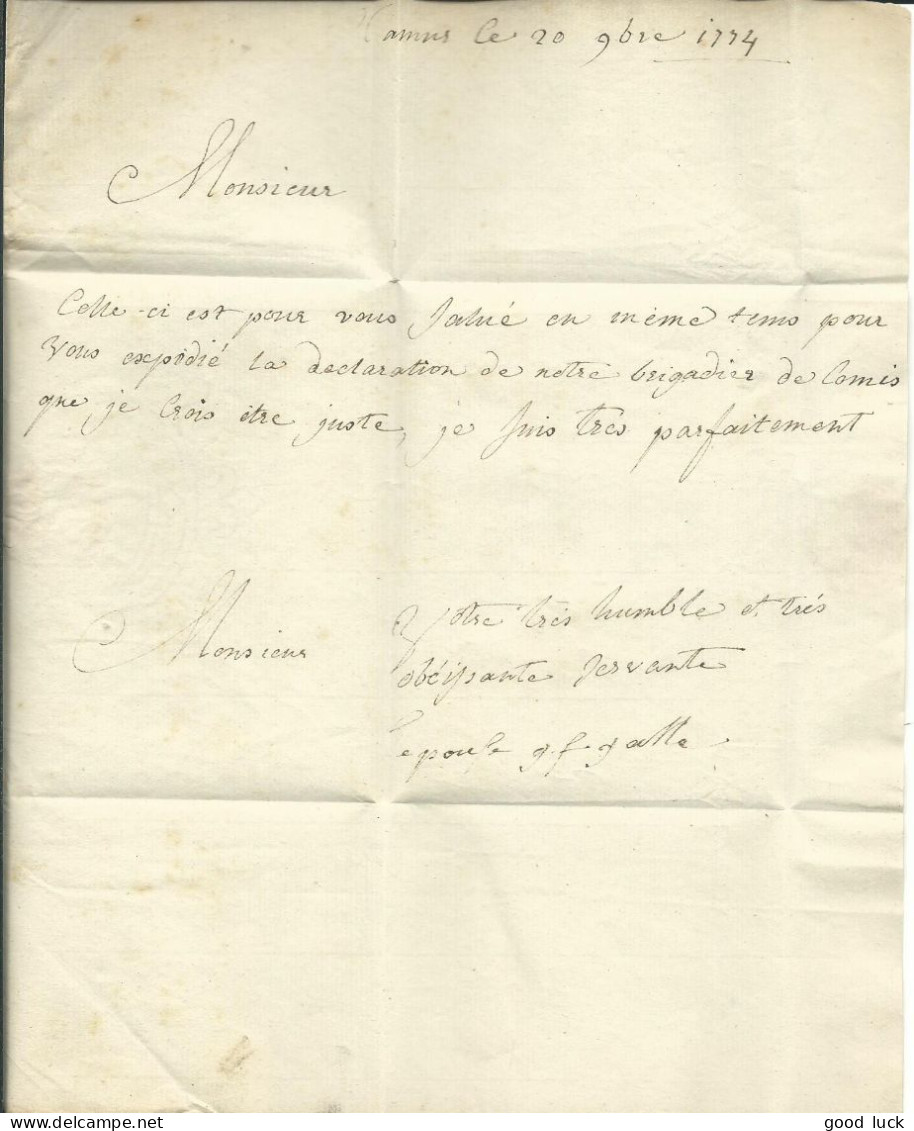 Namur le 20 9bre 1774
Monsieur
Celle-ci est pour vous salué en même tems pour
vous expidié la declaration de notre brigadier de Comis
que je Crois être juste, je suis très parfaitement
Monsieur
Votre très humble et très
obéissante servante
epouse g.f galle
good luck